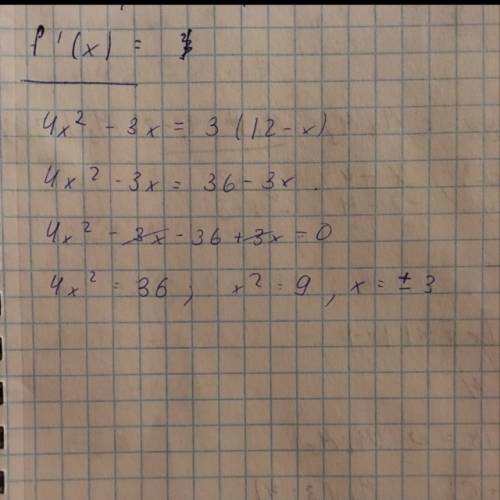 f'(x) =
4x² - 3x = 3(12 - x)
4x² - 3x = 36 - 3x.
4x² - 3x - 36 + 3x = 0
4x² = 36; x² = 9, x = ± 3